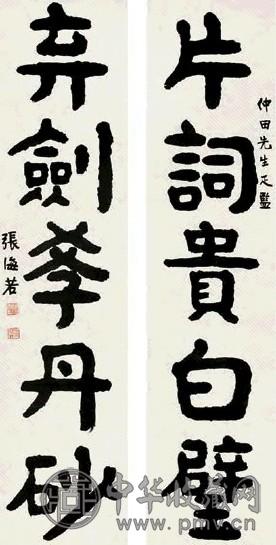 仲田先生疋監
片詞貴白璧
弃劍學丹砂
張海若
中华收藏网
www.pmv.cn